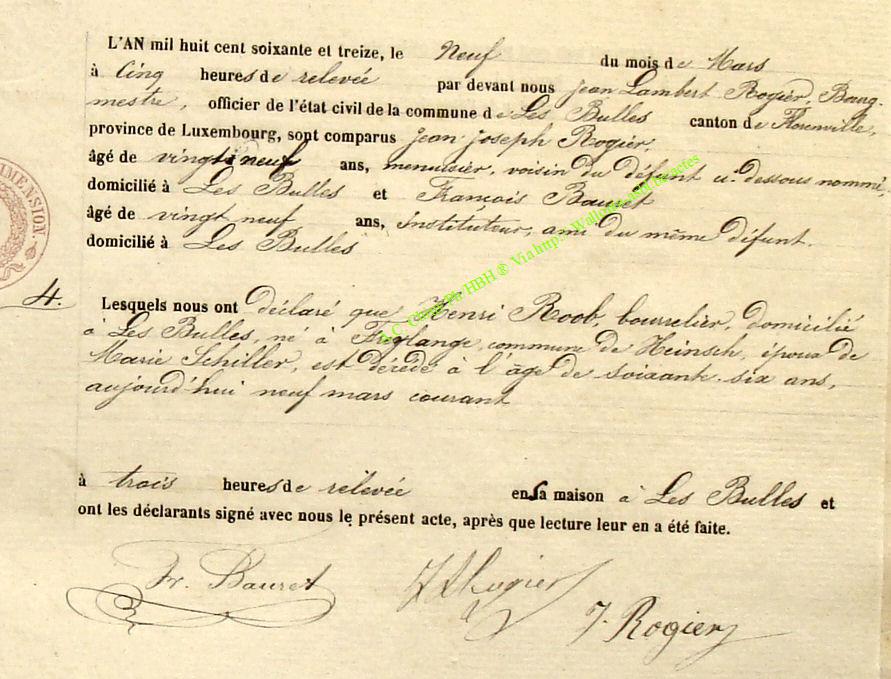 L'AN mil huit cent soixante et treize, le Neuf du mois de Mars
à Cinq heures de relevée par devant nous Jean Lambert Rogier, Bourg-
mestre, officier de l'état civil de la commune de Les Bulles canton de Florenville,
province de Luxembourg, sont comparus Jean Joseph Rogier,
âgé de vingt neuf ans, menuisier, voisin du défunt ci-dessous nommé,
domicilié à Les Bulles et François Bauret
âgé de vingt neuf ans, instituteur, ami du même défunt.
domicilié à Les Bulles
4.
Lesquels nous ont déclaré que Henri Roob, bourrelier, domicilié
à Les Bulles, né à Freylange, commune de Heinsch, époux de
Marie Schiller, est décédé à l'âge de soixante-six ans,
aujourd'hui neuf mars courant
à trois heures de relevée en sa maison à Les Bulles et
ont les déclarants signé avec nous le présent acte, après que lecture leur en a été faite.
Fr. Bauret
J. Rogier
DIMENSION
HBH @ Via http: